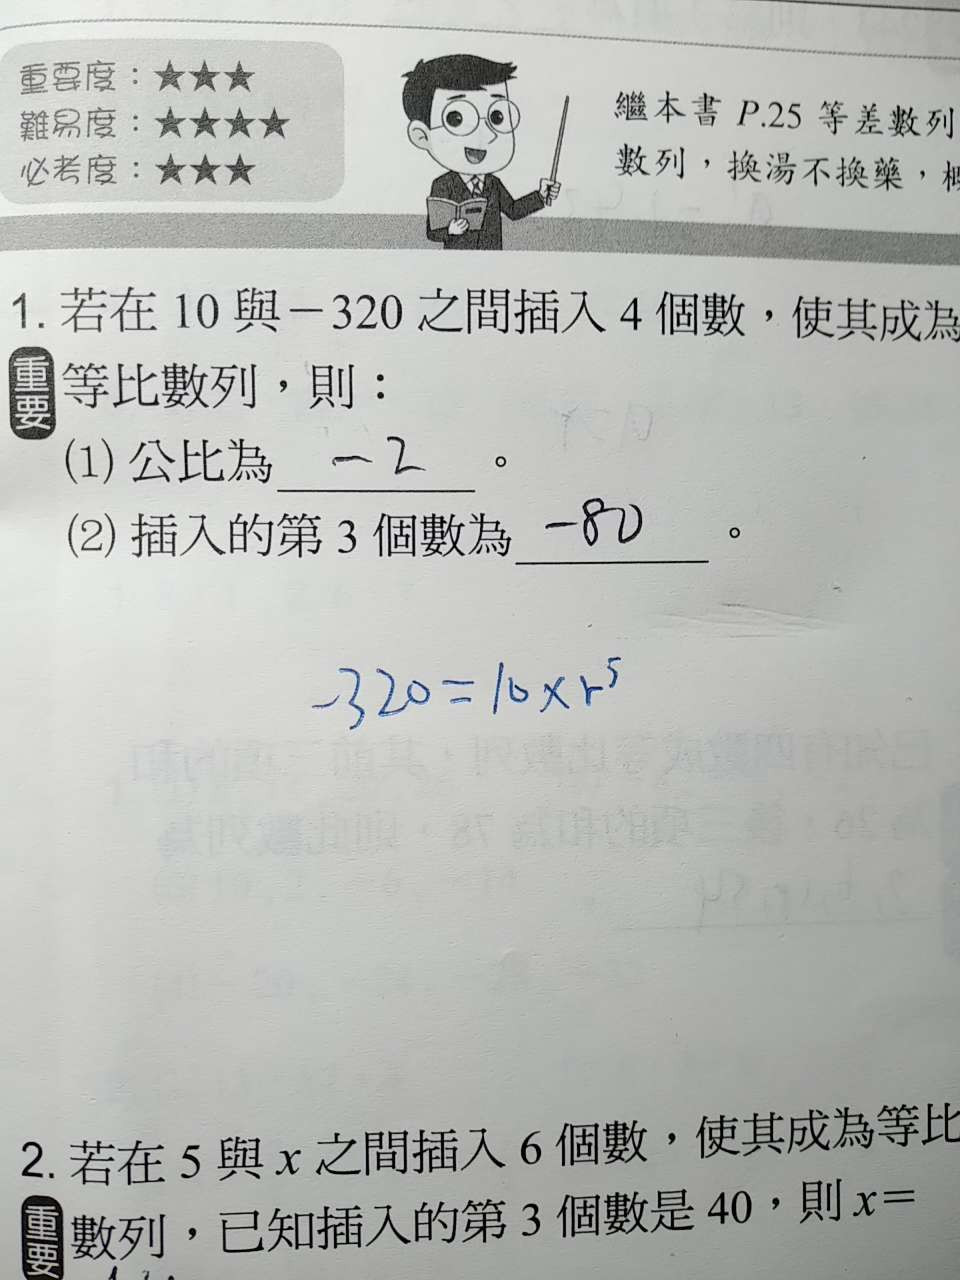 重要度：★★★
難易度：★★★★
必考度：★★★
繼本書 P.25 等差數列
數列，換湯不換藥，
1. 若在 10 與－320 之間插入 4 個數，使其成為
重要 等比數列，則：
(1) 公比為 -2 。
(2) 插入的第 3 個數為 -80 。
-320=10×r⁵
2. 若在 5 與 x 之間插入 6 個數，使其成為等比
重要 數列，已知插入的第 3 個數是 40，則 x＝